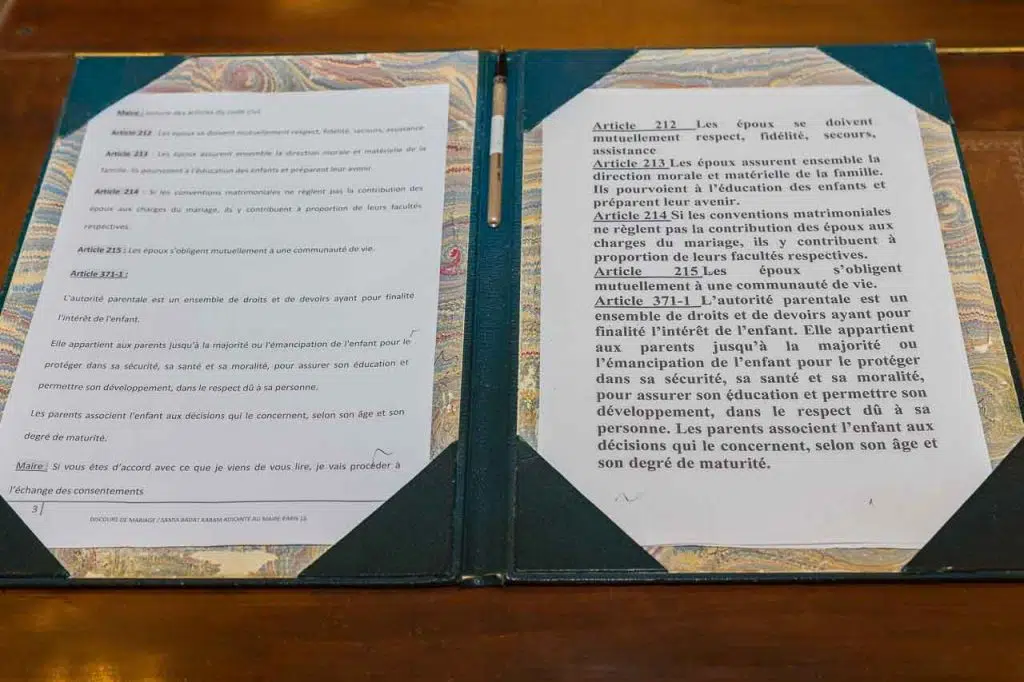 Maire : Lecture des articles du code civil
Article 212 : Les époux se doivent mutuellement respect, fidélité, secours, assistance
Article 213 : Les époux assurent ensemble la direction morale et matérielle de la
famille. Ils pourvoient à l'éducation des enfants et préparent leur avenir.
Article 214 : Si les conventions matrimoniales ne règlent pas la contribution des
époux aux charges du mariage, ils y contribuent à proportion de leurs facultés
respectives.
Article 215 : Les époux s'obligent mutuellement à une communauté de vie.
Article 371-1 :
L'autorité parentale est un ensemble de droits et de devoirs ayant pour finalité
l'intérêt de l'enfant.
Elle appartient aux parents jusqu'à la majorité ou l'émancipation de l'enfant pour le
protéger dans sa sécurité, sa santé et sa moralité, pour assurer son éducation et
permettre son développement, dans le respect dû à sa personne.
Les parents associent l'enfant aux décisions qui le concernent, selon son âge et son
degré de maturité.
Maire : Si vous êtes d'accord avec ce que je viens de vous lire, je vais procéder à
l'échange des consentements
3 |
DISCOURS DE MARIAGE / SAMIA BADAT KARAM ADJOINTE AU MAIRE PARIS 16
Article 212 Les époux se doivent
mutuellement respect, fidélité, secours,
assistance
Article 213 Les époux assurent ensemble la
direction morale et matérielle de la famille.
Ils pourvoient à l'éducation des enfants et
préparent leur avenir.
Article 214 Si les conventions matrimoniales
ne règlent pas la contribution des époux aux
charges du mariage, ils y contribuent à
proportion de leurs facultés respectives.
Article 215 Les époux s'obligent
mutuellement à une communauté de vie.
Article 371-1 L'autorité parentale est un
ensemble de droits et de devoirs ayant pour
finalité l'intérêt de l'enfant. Elle appartient
aux parents jusqu'à la majorité ou
l'émancipation de l'enfant pour le protéger
dans sa sécurité, sa santé et sa moralité,
pour assurer son éducation et permettre son
développement, dans le respect dû à sa
personne. Les parents associent l'enfant aux
décisions qui le concernent, selon son âge et
son degré de maturité.